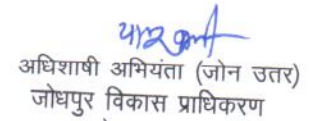 अधिशाषी अभियंता (जोन उतर)
जोधपुर विकास प्राधिकरण